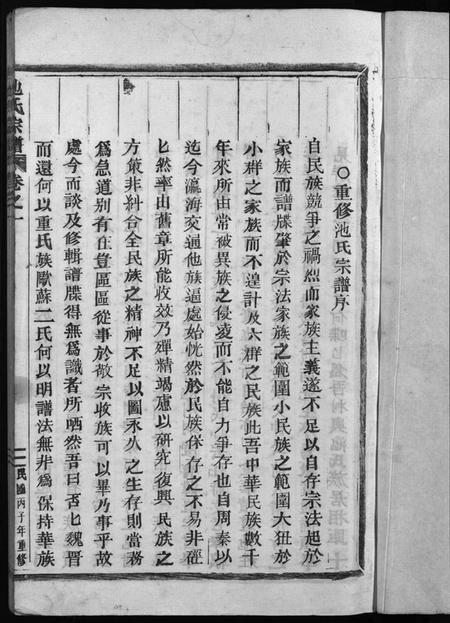 ○重修池氏宗譜序
自民族競爭之禍烈而家族主義遂不足以自存宗法起於
家族而譜牒肇於宗法家族之範圍小民族之範圍大狃於
小群之家族而不遑計及大群之民族此吾中華民族數千
年來所由常被異族之侵凌而不能自力爭存也自周秦以
迄今瀛海交通他族逼處始恍然於民族保存之不易非硜
匕然率由舊章所能收效乃殫精竭慮以研究復興民族之
方策非糾合全民族之精神不足以圖永久之生存則當務
為急道別有在豈區區從事於敬宗收族可以畢乃事乎故
處今而談及修輯譜牒得無為識者所哂然吾曰否匕魏晉
而還何以重氏族歐蘇二氏何以明譜法無非為保持華族
池氏宗譜 卷之一
民國丙子年重修